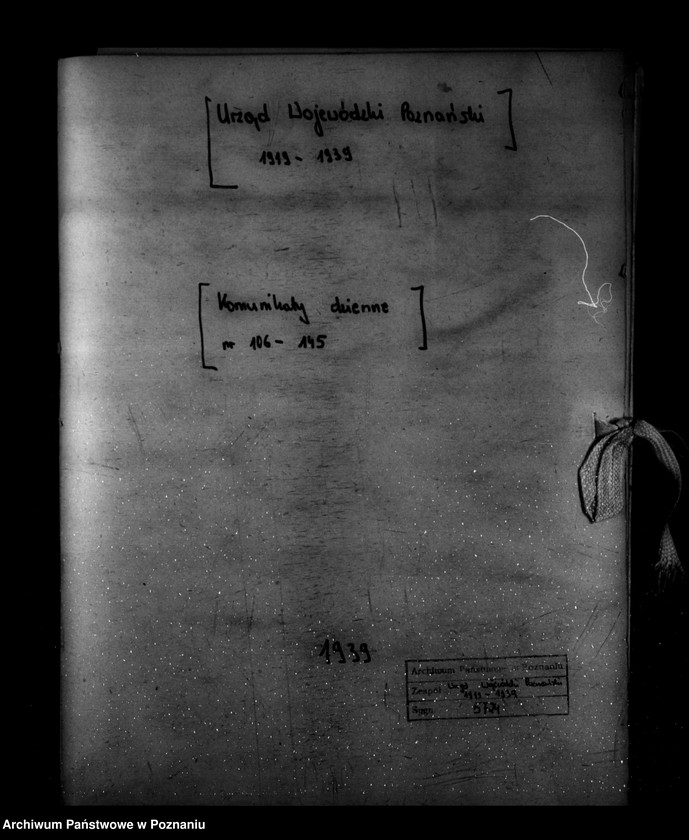 [Urząd Wojewódzki Poznański]
1919 - 1939
[Komunikaty dzienne
nr 106 - 145]
1939
Archiwum Państwowe w Poznaniu
Zespół Urząd Wojewódzki Poznański
1919 - 1939
Sygn. 5724
Archiwum Państwowe w Poznaniu